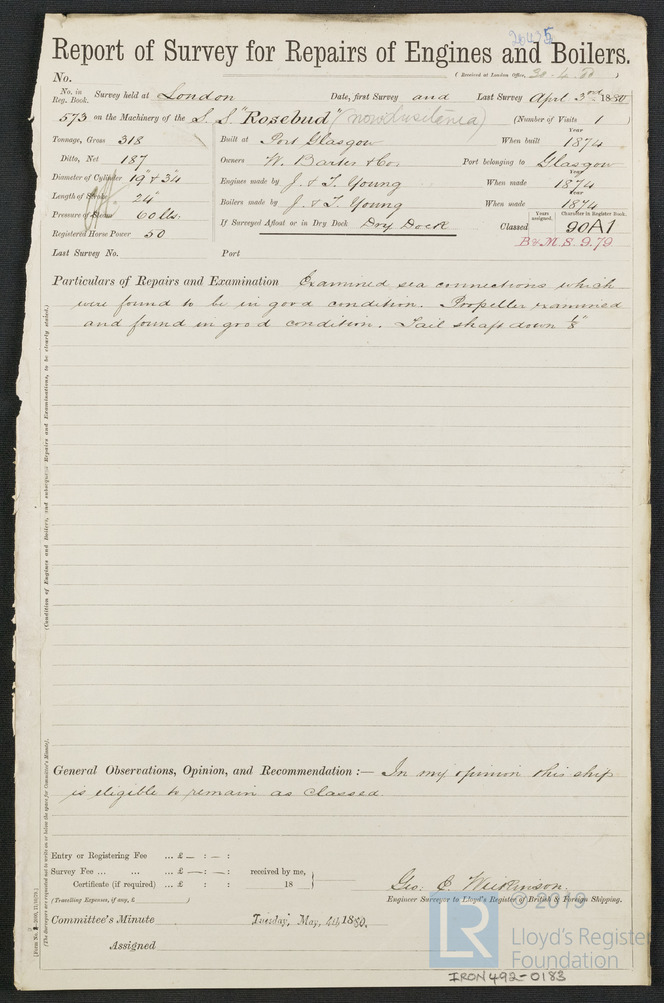 20435
Report of Survey for Repairs of Engines and Boilers.
No. (Received at London Office, 30-4-80)
No. in Reg. Book. Survey held at London Date, first Survey and Last Survey April 3rd 1880
573 on the Machinery of the S. S. "Rosebud" (now Lusitania) (Number of Visits 1)
Tonnage, Gross 318 Built at Port Glasgow When built Year 1874
Ditto, Net 187 Owners W. Barter & Co. Port belonging to Glasgow
Diameter of Cylinder 19" & 34" Engines made by J. & T. Young When made Year 1874
Length of Stroke 24" Boilers made by J. & T. Young When made Year 1874
Pressure of Steam 60 lbs. If Surveyed Afloat or in Dry Dock Dry Dock Classed Years assigned. Character in Register Book. 90A1
Registered Horse Power 50 B&M S. 9.79
Last Survey No. Port
Particulars of Repairs and Examination Examined sea connections which
were found to be in good condition. Propeller examined
and found in good condition. Tail shaft down 1/8"
(Condition of Engines and Boilers, and subsequent Repairs and Examinations, to be clearly stated.)
General Observations, Opinion, and Recommendation :— In my opinion this ship
is eligible to remain as Classed.
(The Surveyors are requested not to write on or below the space for Committee's Minute).
Entry or Registering Fee ... £ — : — :
Survey Fee ... ... ... £ — : — : received by me,
Certificate (if required) ... £ : : 18
(Travelling Expenses, if any, £ )
Geo. C. Wilkinson.
Engineer Surveyor to Lloyd's Register of British & Foreign Shipping.
Committee's Minute Tuesday, May, 4th 1880.
Assigned
LR © 2019
Lloyd's Register
Foundation
IRON492-0183